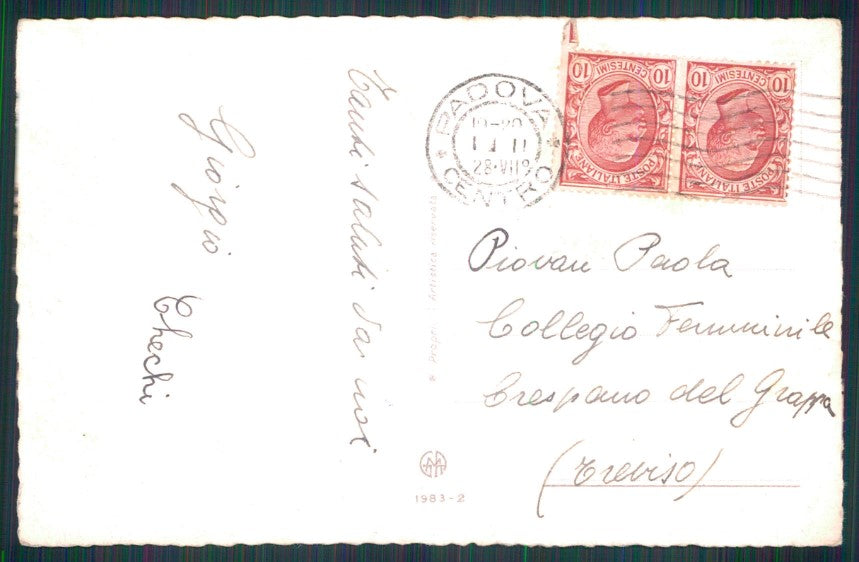 Tanti saluti da noi
Giorgio
Checchi
PADOVA
CENTRO
10 CENTESIMI 10
POSTE ITALIANE
10 CENTESIMI 10
POSTE ITALIANE
Piovan Paola
Collegio Femminile
Crespano del Grappa
(Treviso)
Artistica riservata
1983-2